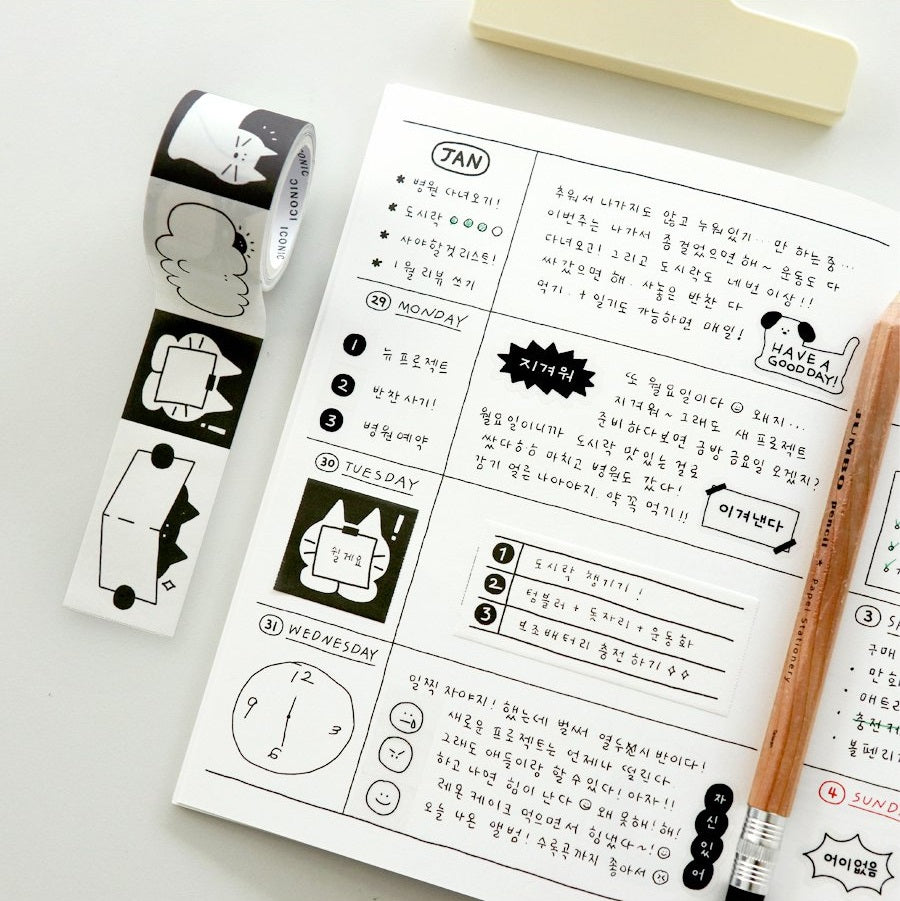 ICONIC ICONIC
JAN
* 병원 다녀오기!
* 도시락
* 사야할것 리스트!
* 1월 리뷰 쓰기
추워서 나가지도 않고 누워있기... 만 하는 중...
이번주는 나가서 좀 걸었으면 해~ 운동도 다
다녀오고! 그리고 도시락도 네번 이상!!
싸갔으면 해. 사놓은 반찬 다
먹기. + 일기도 가능하면 매일!
HAVE A
GOOD DAY!
29 MONDAY
1 뉴 프로젝트
2 반찬 사기!
3 병원예약
지겨워
또 월요일이다 왜지...
지겨워~ 그래도 새 프로젝트
준비하다보면 금방 금요일 오겠지?
월요일이니까 도시락 맛있는 걸로
쌌다 승승 마치고 병원도 갔다!
감기 얼른 나아야지. 약 꼭 먹기!!
이겨낸다
30 TUESDAY
!
쉴게요
1 도시락 챙기기!
2 텀블러 + 돗자리 + 운동화
3 보조배터리 충전하기
31 WEDNESDAY
12
9 3
6
일찍 자야지! 했는데 벌써 열두시 반이다!
새로운 프로젝트는 언제나 떨린다.
그래도 애들이랑 할 수 있다! 아자!!
하고 나면 힘이 난다 왜 못해! 해!
레몬 케이크 먹으면서 힘냈다~!
오늘 나온 앨범! 수록곡까지 좋아서
자
신
있
어
JUMBO pencil * Papel Stationery
3
구매
• 만화
• 매트
• 충전
• 볼펜
4 SUND
어이없음